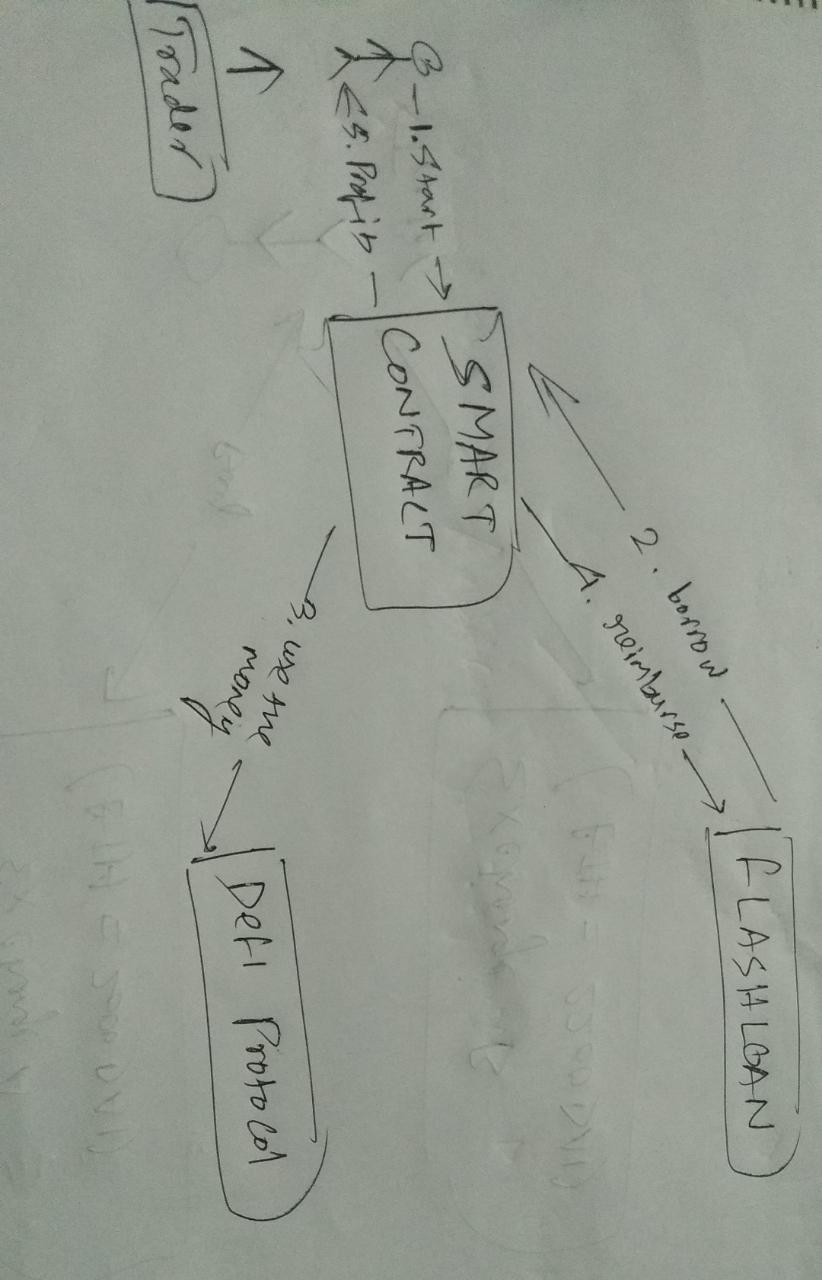 FLASHLOAN
2. borrow
4. reimburse
SMART
CONTRACT
1. Start
5. Profit
3. use the
money
Defi Protocol
Trader